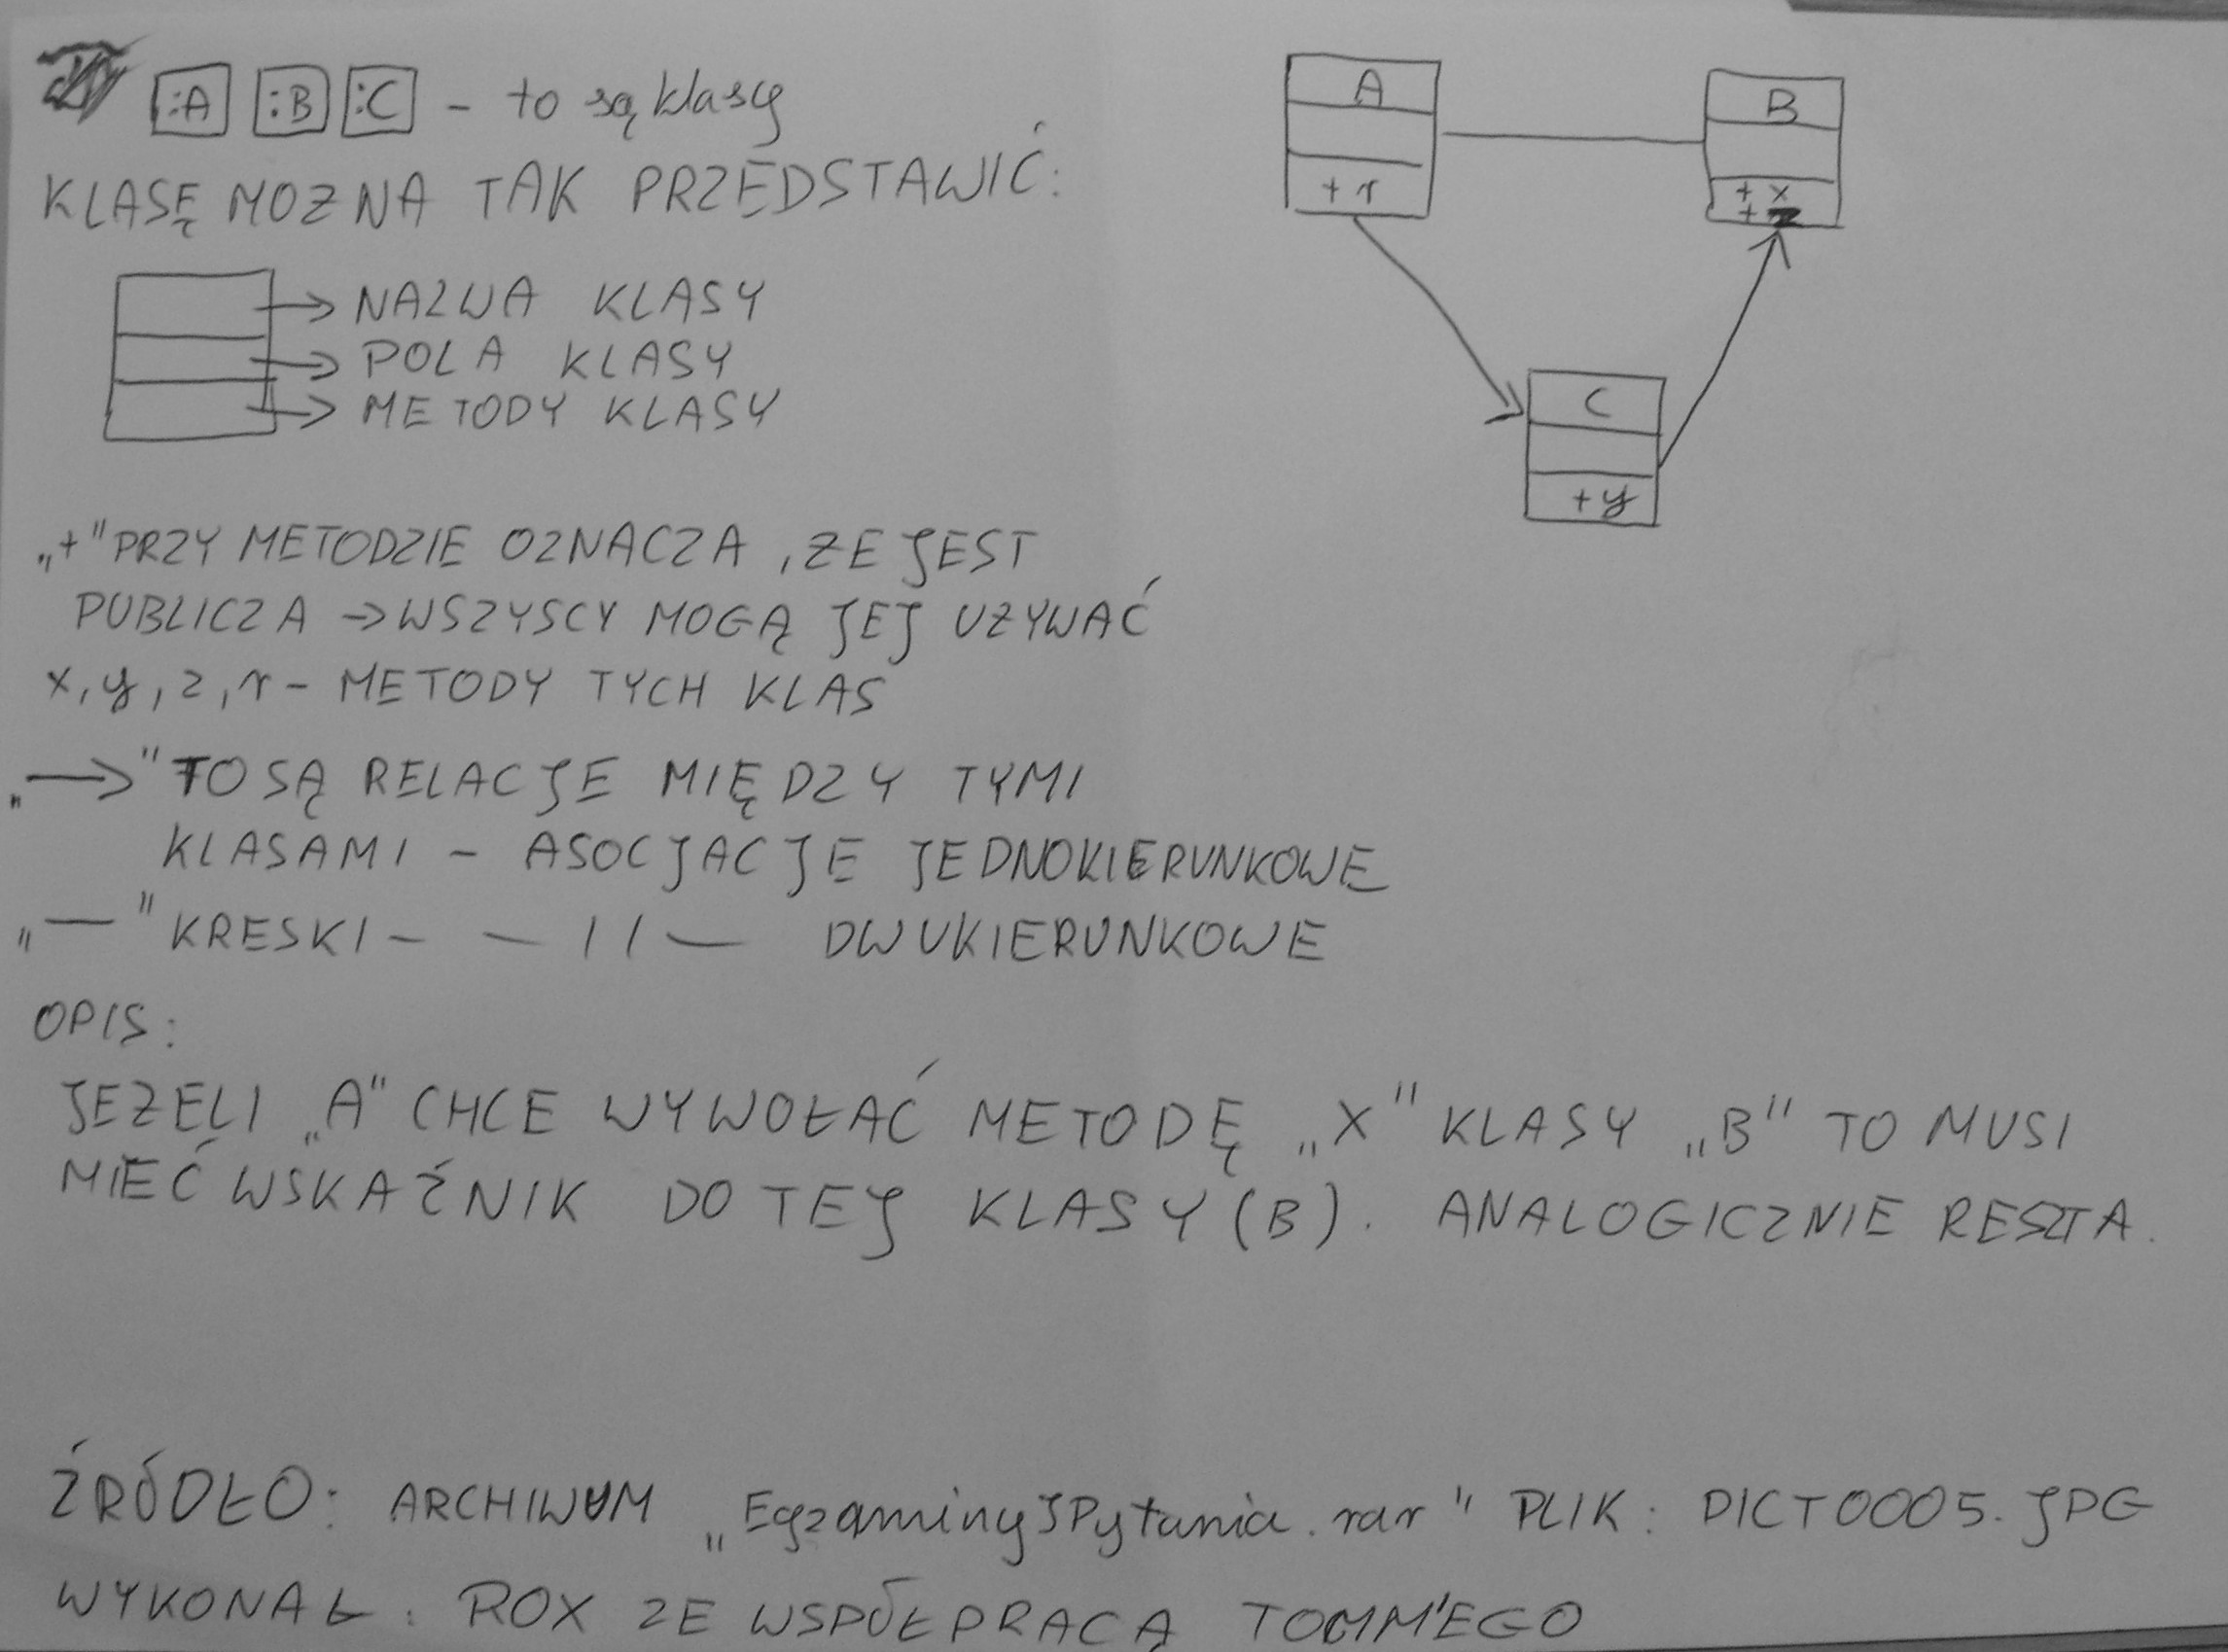 :A :B :C - to są klasy
KLASĘ MOZNA TAK PRZEDSTAWIĆ:
NAZWA KLASY
POLA KLASY
METODY KLASY
A
+ r
B
+ x
+ z
C
+ y
„+" PRZY METODZIE OZNACZA, ZE JEST
PUBLICZA → WSZYSCY MOGĄ JEJ UZYWAĆ
x, y, z, r - METODY TYCH KLAS
„→" TO SĄ RELACJE MIĘDZY TYMI
KLASAMI - ASOCJACJE JEDNOKIERUNKOWE
„—" KRESKI - — || — DWUKIERUNKOWE
OPIS:
JEZELI „A" CHCE WYWOŁAĆ METODĘ „X" KLASY „B" TO MUSI
MIEĆ WSKAŹNIK DO TEJ KLASY (B). ANALOGICZNIE RESZTA.
ŹRÓDŁO: ARCHIWUM „EgzaminyIPytania.rar" PLIK: PICT0005.JPG
WYKONAŁ: ROX ZE WSPÓŁPRACĄ TOMM'EGO